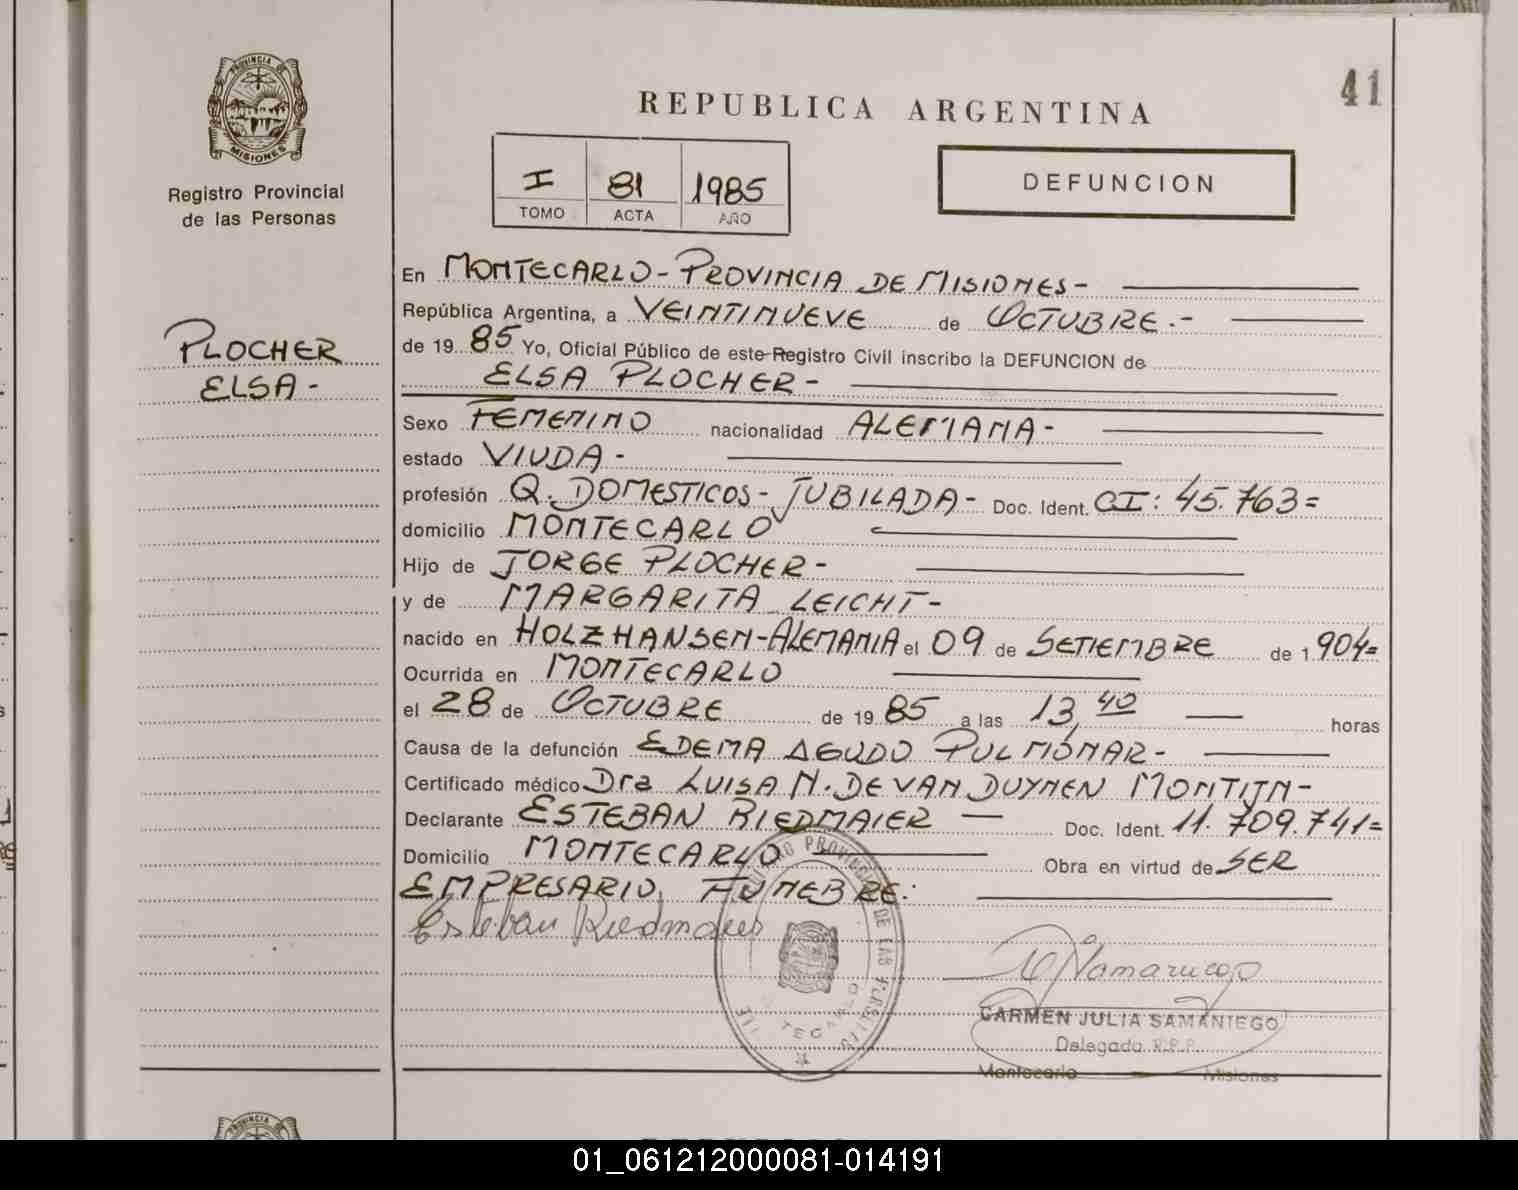 41
PROVINCIA DE
MISIONES
Registro Provincial
de las Personas
PLOCHER
ELSA -
REPUBLICA ARGENTINA
I 81 1985
TOMO ACTA AÑO
DEFUNCION
En MONTECARLO - PROVINCIA DE MISIONES -
República Argentina, a VEINTINUEVE de OCTUBRE.-
de 19 85 Yo, Oficial Público de este Registro Civil inscribo la DEFUNCION de
ELSA PLOCHER -
Sexo FEMENINO nacionalidad ALEMANA -
estado VIUDA -
profesión Q. DOMESTICOS - JUBILADA - Doc. Ident. CI: 45.763=
domicilio MONTECARLO
Hijo de JORGE PLOCHER -
y de MARGARITA LEICHT -
nacido en HOLZHANSEN - ALEMANIA el 09 de SETIEMBRE de 1.904=
Ocurrida en MONTECARLO
el 28 de OCTUBRE de 19 85 a las 13,40 horas
Causa de la defunción EDEMA AGUDO PULMONAR -
Certificado médico Dra LUISA N. DE VAN DUYNEN
Declarante ESTEBAN RIEDMAIER — Doc. Ident. 11.709.741=
Domicilio MONTECARLO Obra en virtud de SER
EMPRESARIO FUNEBRE:
Esteban Riedmaier
CARMEN JULIA SAMANIEGO
Delegada R.P.P.
Montecarlo Misiones
01_061212000081-014191